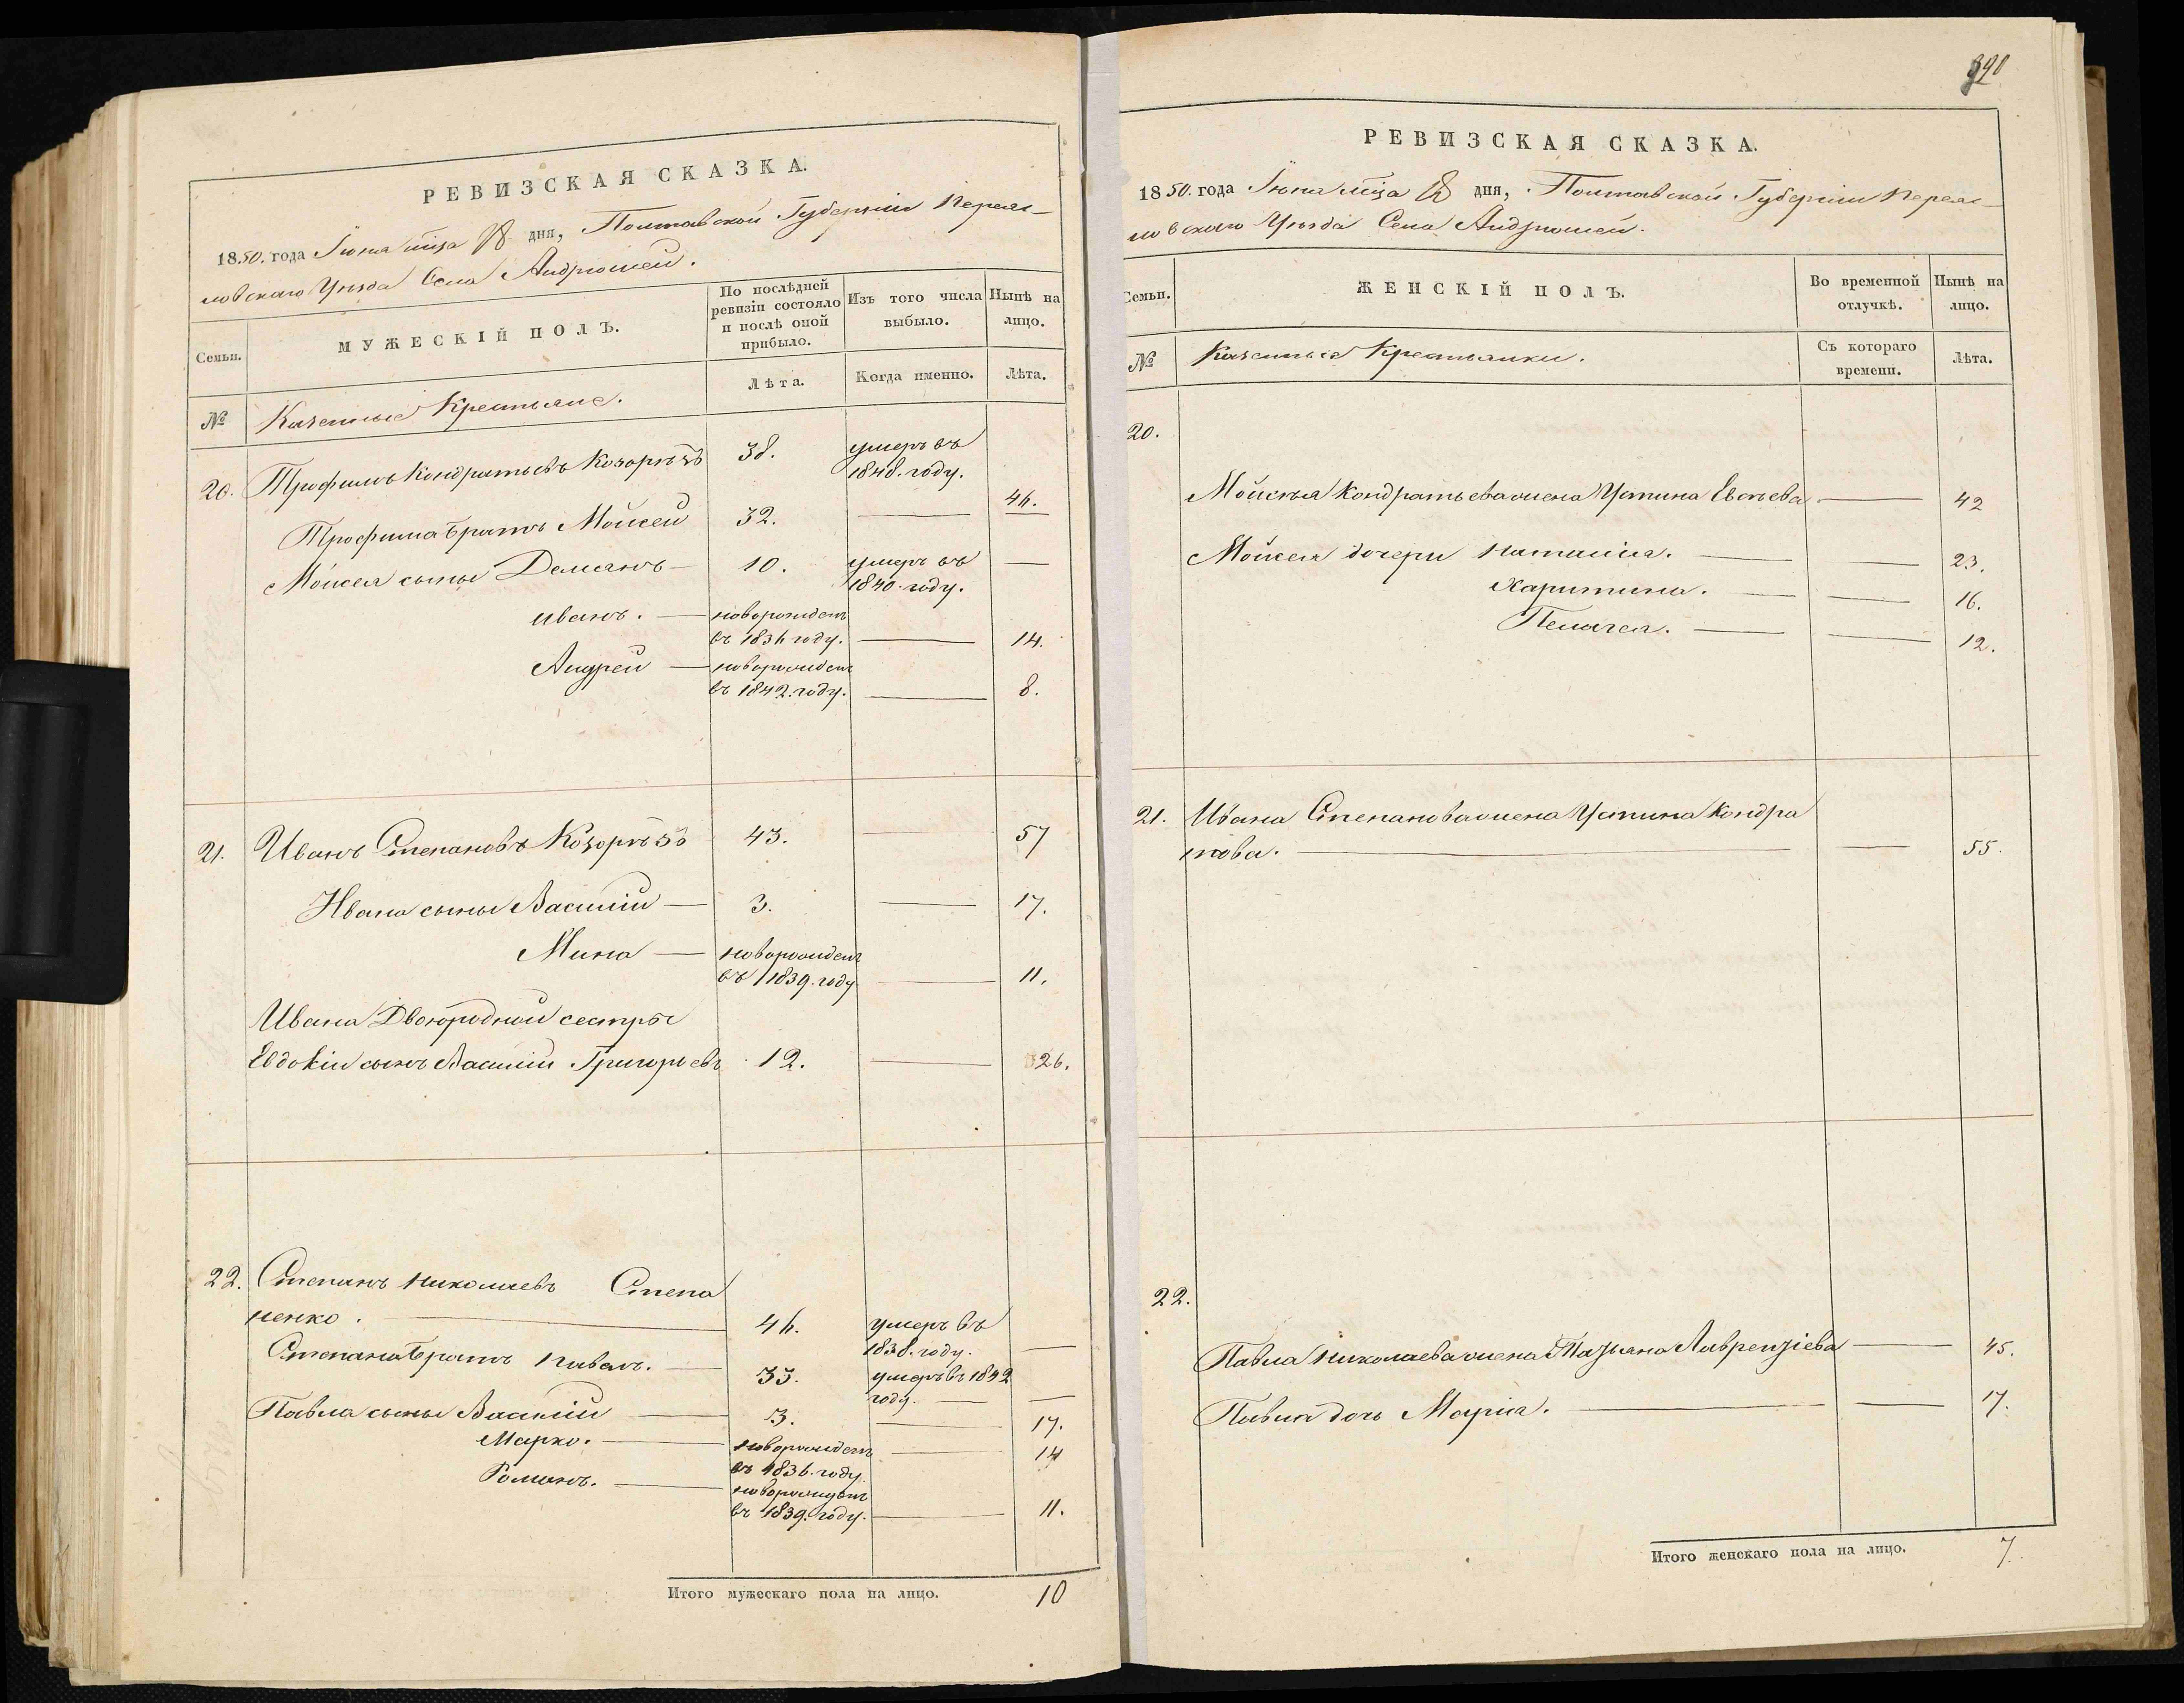 РЕВИЗСКАЯ СКАЗКА.
1850. года Іюня мца 18 дня, Полтавской Губерніи Переяс-
ловскаго Уѣзда Села Андрюшей.
Семьи.
МУЖЕСКІЙ ПОЛЪ.
По послѣдней
ревизіи состояло
и послѣ оной
прибыло.
Изъ того числа
выбыло.
Нынѣ на
лицо.
Лѣта.
Когда именно.
Лѣта.
№
Казенные Крестьяне.
20. Трофимъ Кондратьевъ Козорѣзъ 38. умеръ въ
1848. году.
Трофима братъ Мойсей 32. — 46.
Мойсея сыны Демьянъ — 10. умеръ въ —
1840. году.
иванъ. — новорожден
въ 1836 году. — 14.
Андрей — новорожден
въ 1842. году. — 8.
21. Иванъ Степановъ Козорѣзъ 43. — 57
Ивана сыны Василій — 3. — 17.
Мина — новорожден
въ 1839. году — 11.
Ивана Двоюродной сестры
Евдокіи сынъ Василій Григорьевъ 12. — 26.
22. Степанъ Николаевъ Степа
ненко. — 46. умеръ въ
1838. году. —
Степана братъ Павелъ. — 33. умеръ въ 1842
году. — —
Павла сыны Василій — 3. — 17.
Марко. — новорожден — 14
въ 1836. году.
Романъ. — новорожден
въ 1839. году. — 11.
Итого мужескаго пола на лицо. 10
РЕВИЗСКАЯ СКАЗКА.
1850. года Іюня мца 18 дня, Полтавской Губерніи Переяс-
ловскаго Уѣзда Села Андрюшей.
Семьи.
ЖЕНСКІЙ ПОЛЪ.
Во временной
отлучкѣ.
Нынѣ на
лицо.
№
Казенные Крестьянки.
Съ котораго
времени.
Лѣта.
20.
Мойсея Кондратьева жена Устина Евсѣева — 42
Мойсея дочери Наталія. — — 23.
Харитина. — — 16.
Пелагея. — — 12.
21. Ивана Степанова жена Устина Кондра
това. — — 55.
22.
Павла Николаева жена Татьяна Лаврентіева — 45.
Павла дочь Марія. — — 17.
Итого женскаго пола на лицо. 7.